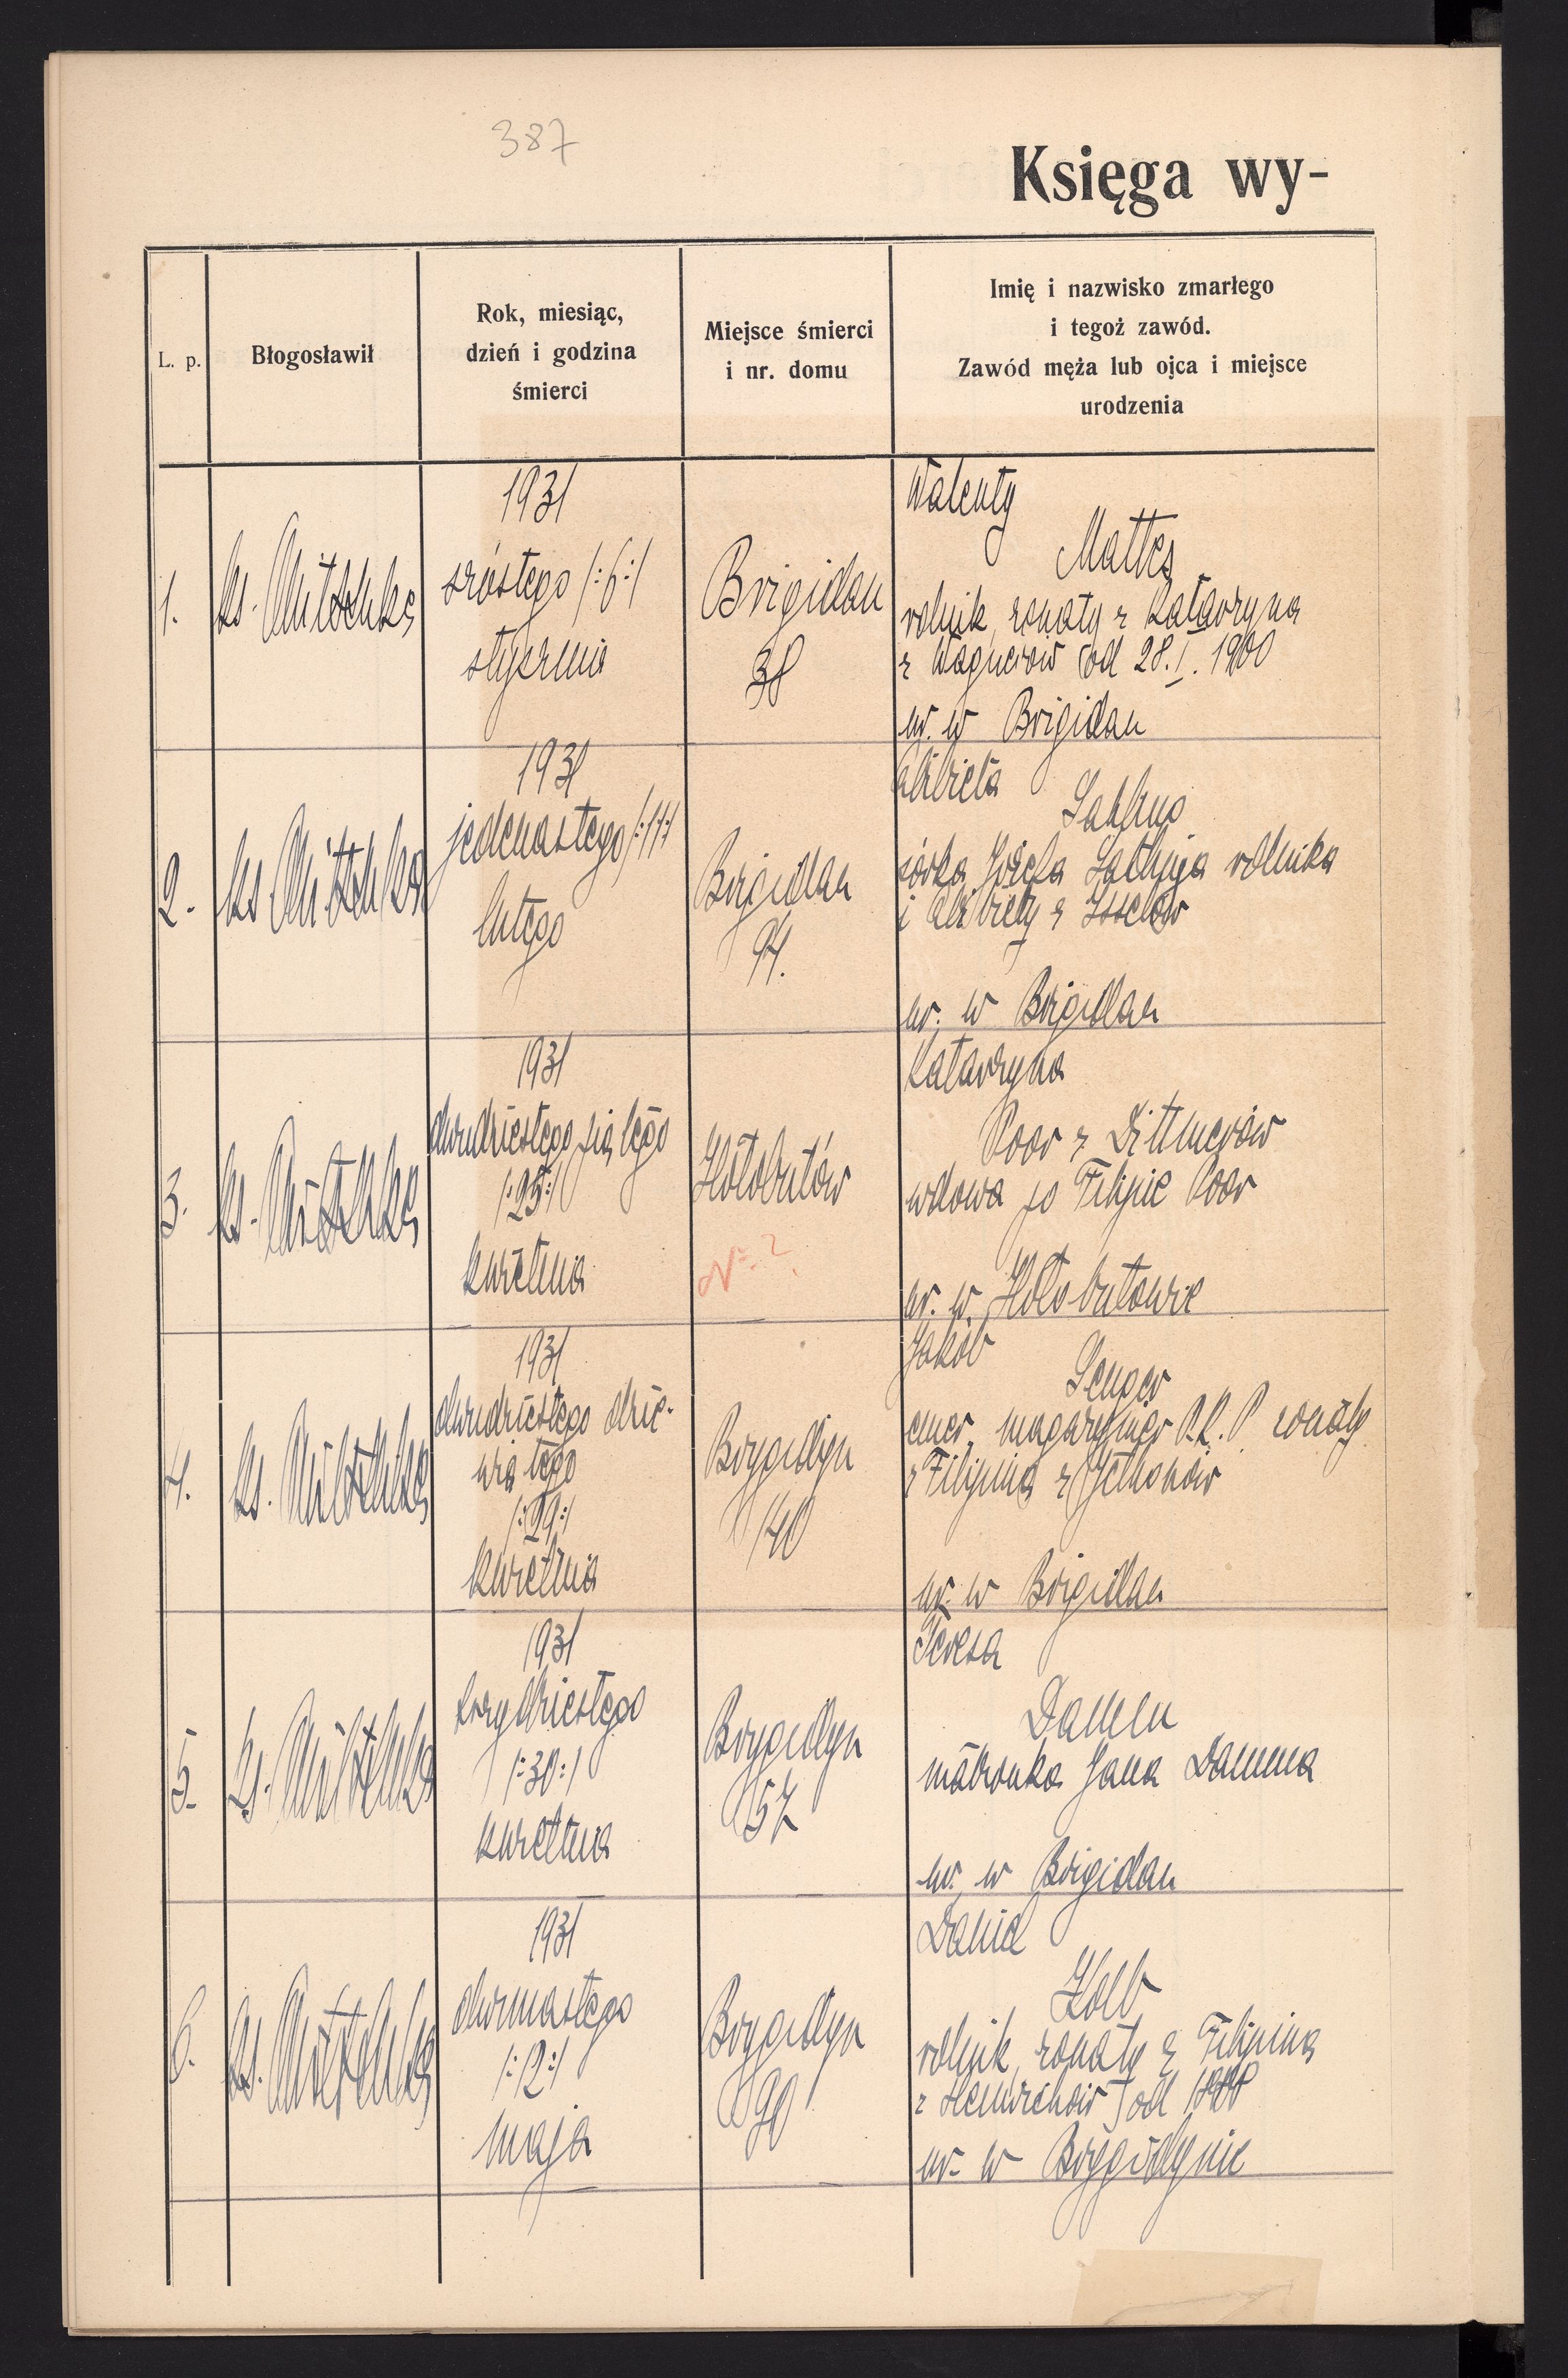 387
Księga wy-
L. p.
Błogosławił
Rok, miesiąc,
dzień i godzina
śmierci
Miejsce śmierci
i nr. domu
Imię i nazwisko zmarłego
i tegoż zawód.
Zawód męża lub ojca i miejsce
urodzenia
1.
ks. Mitschke
1931
szóstego /:6:/
stycznia
Brigidau
38
Walenty
Mattes
rolnik, żonaty z Katarzyną
z Wagnerów od 28.I.1900
ur. w Brigidau
2.
ks. Mitschke
1931
jedenastego /:11:/
lutego
Brigidau
94.
Elżbieta
córka Józefa rolnika
i Elżbiety z Isselów
ur. w Brigidau
3.
ks. Mitschke
1931
dwudziestego piątego
/:25:/
kwietnia
Hołobutów
Nr. 2.
Katarzyna
Poor z Dittmerów
wdowa po Filipie Poor
ur. w Hołobutowie
4.
ks. Mitschke
1931
dwudziestego dzie-
wiątego
/:29:/
kwietnia
Brygidyn
140
Jakób
Senger
emer. magazynier P.K.P. żonaty
z Filipiną z
ur. w Brigidau
5.
ks. Mitschke
1931
trzydziestego
/:30:/
kwietnia
Brygidyn
57
Teresa
Damm
małżonka Jana Damma
ur. w Brigidau
6.
ks. Mitschke
1931
dwunastego
/:12:/
maja
Brygidyn
90
Daniel
Kolb
rolnik, żonaty z Filipiną
z Heinrichów od
ur. w Brygidynie